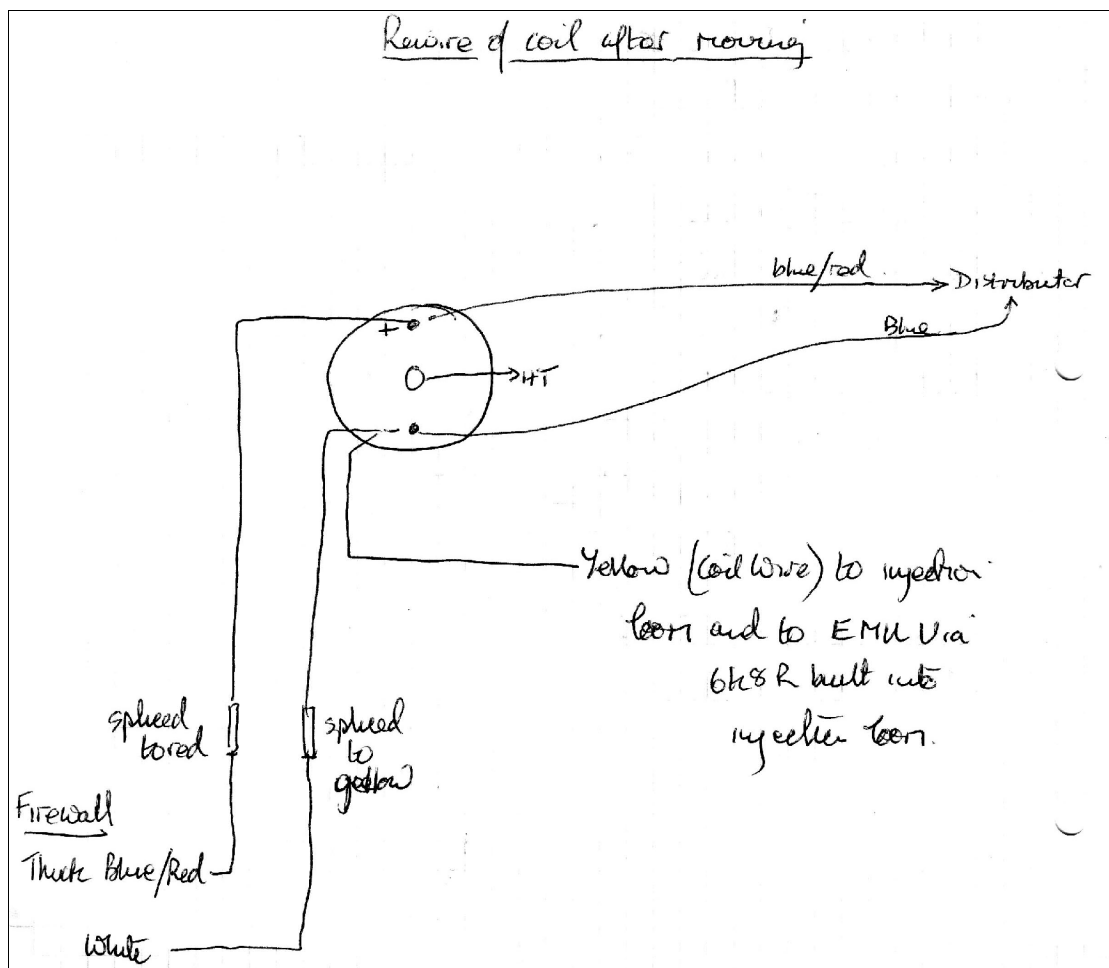 Rewire of coil after moving
blue/red
Distributor
Blue
+
HT
Yellow (Coil Wire) to injection
loom and to EMU Via
6k8 R built into
injection loom.
spliced
to red
spliced
to
yellow
Firewall
Thick Blue/Red
White